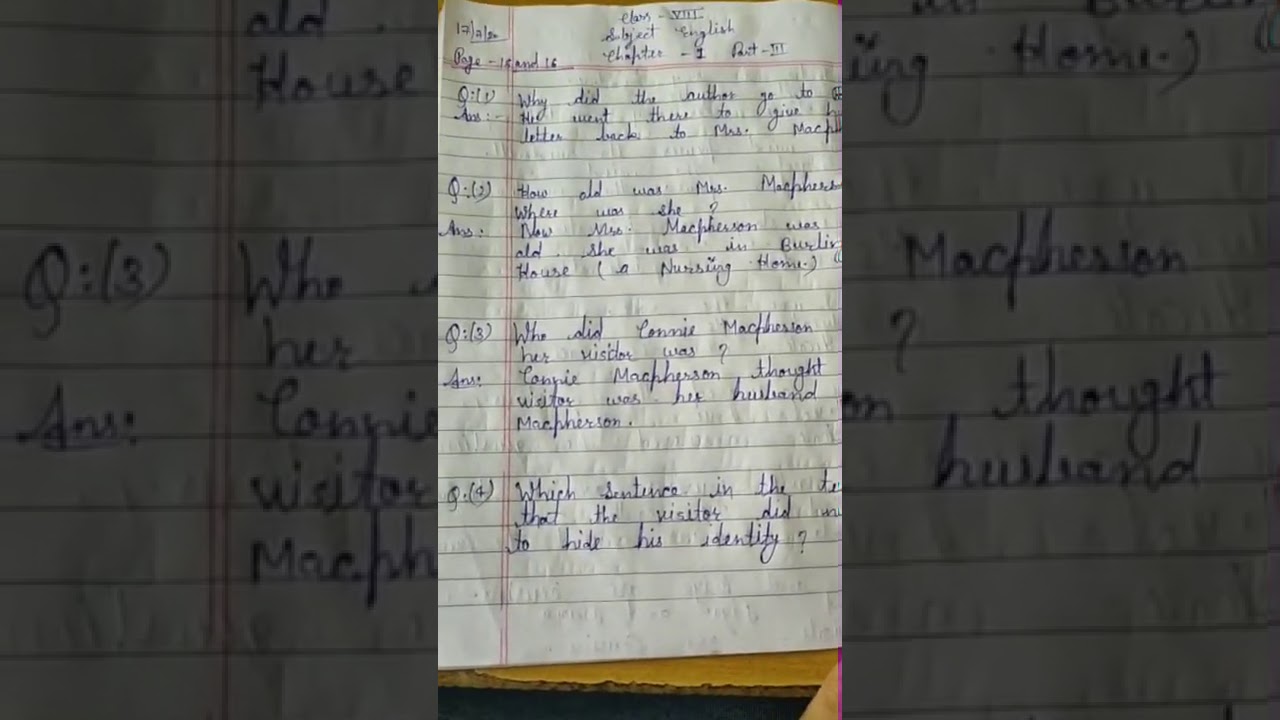 Class - VIII
Subject English
Chapter - 1 Part - III
Page - 15 and 16
Q:(1) Why did the author go to
Ans:- He went there to give
letter back to Mrs. Macph
Q:(2) How old was Mrs. Macphers
Where was she ?
Ans: Now Mrs. Macpherson was
old. she was in Burlin
House (a Nursing Home.)
Q:(3) Who did Connie Macpherson
her visitor was ?
Ans: Connie Macpherson thought
visitor was her husband
Macpherson.
Q.(4) Which sentence in the te
that the visitor did
to hide his identity ?